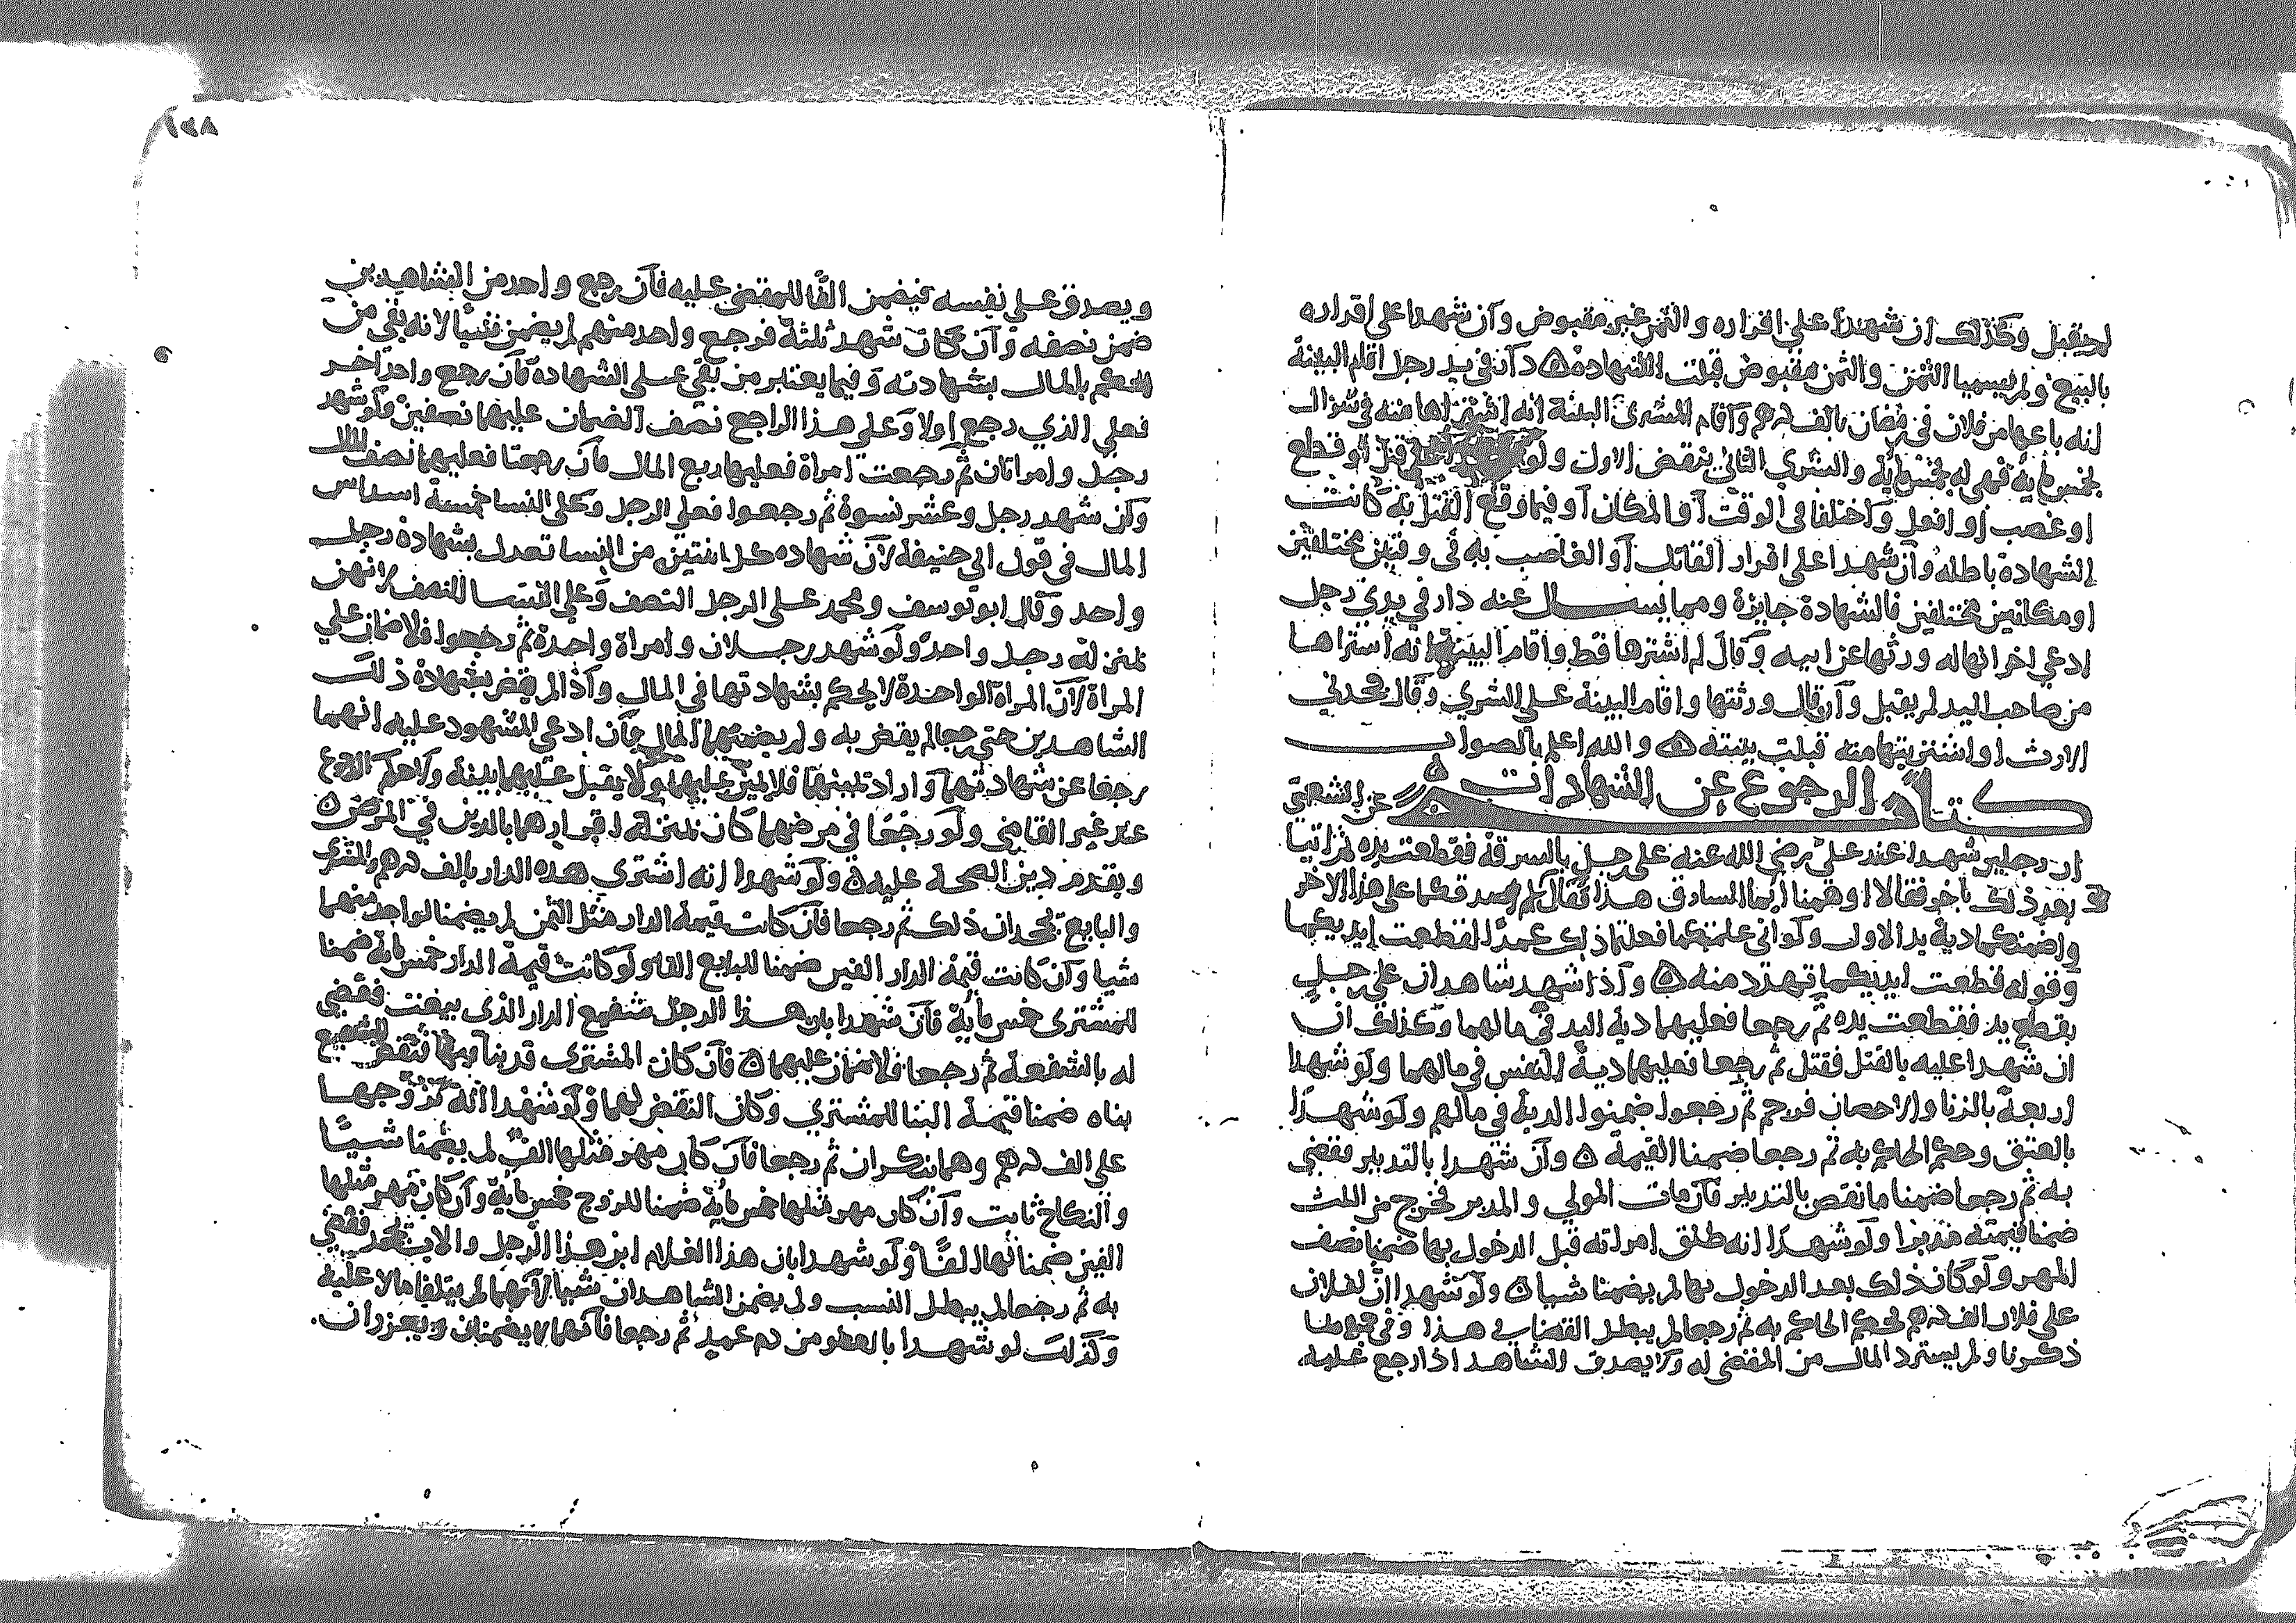 لم يقبل وكذلك ان شهدا على اقراره والثمن غير مقبوض وان شهدا على اقراره
بالبيع ولم يسميا الثمن والثمن مقبوض قبلت الشهادة دار في يد رجل اقام البينة
انه باعها من فلان في رمضان بالف درهم واقام المشتري البينة انه اشتراها منه في شوال
بخمس ماية فهي له بخمس ماية والشري الثاني ينقض الاول ولو في قتل او قطع
او غصب او افعل واختلفا في الوقت او المكان او فيما وقع القتل به كانت
الشهادة باطله وان شهدا على اقرار القاتل او الغاصب به في وقتين مختلفين
او مكانين مختلفين فالشهادة جايزة ومما يسال عنه دار في يدي رجل
ادعي اخر انها له ورثها عن ابيه وقال لم اشترها قط واقام البينة انه اشتراها
من صاحب اليد لم يقبل وان قال ورثتها واقام البينة على الشري وقال جحدني
الارث او اشتريتها منه قبلت بينته والله اعلم بالصواب
كتاب الرجوع عن الشهادات عن الشعبي
ان رجلين شهدا عند علي رضي الله عنه على رجل بالسرقة فقطعت يده ثم اتيا
بعد ذلك باخر فقالا اوهمنا انما السارق هذا فقال لا اصدقكما على هذا الاخر
واضمنكما دية يد الاول ولو اني علمتكما فعلتما ذلك عمدا لقطعت ايديكما
وقوله قطعت ايديكما تهدد منه واذا شهد شاهدان على رجل
بقطع يد فقطعت يده ثم رجعا فعليهما دية اليد في مالهما وكذلك ان
ان شهدا عليه بالقتل فقتل ثم رجعا فعليهما دية النفس في مالهما ولو شهد
اربعة بالزنا والاحصان فرجم ثم رجعوا ضمنوا الدية في مالهم ولو شهدا
بالعتق وحكم الحاكم به ثم رجعا ضمنا القيمة وان شهدا بالتدبير فقضي
به ثم رجعا ضمنا ما نقص بالتدبير فان مات المولي والمدبر فخرج من الثلث
ضمنا قيمته مدبرا ولو شهدا انه طلق امراته قبل الدخول بها ضمنا نصف
المهر ولو كان ذلك بعد الدخول بها لم يضمنا شيا ولو شهدا ان لفلان
على فلان الف درهم فحكم الحاكم به ثم رجعا لم يبطل القضا في هذا وفي جميع ما
ذكرنا ولم يسترد المال من المقضي له ولا يصدق الشاهد اذا رجع عليه
١٣٨
ويصدق على نفسه فيضمن الفا للمقضي عليه فان رجع واحد من الشاهدين
ضمن نصفه وان كان شهد ثلثة فرجع واحد منهم لم يضمن شيا لانه بقي من
للحكم بالمال بشهادته وفيما يعتبر من بقي على الشهادة فان رجع واحد اخر
فعلي الذي رجع اولا وعلى هذا الراجع نصف الضمان عليهما نصفين ولو شهد
رجل وامراتان ثم رجعت امراة فعليها ربع المال فان رجعتا فعليهما نصف المال
وان شهد رجل وعشر نسوة ثم رجعوا فعلى الرجل وعلى النسا خمسة اسداس
المال في قول ابي حنيفة لان شهاده كل اثنتين من النسا تعدل بشهادة رجل
واحد وقال ابو يوسف ومحمد على الرجل النصف وعلي النسا النصف لانهن
بمنزلة رجل واحد ولو شهد رجلان وامراة واحدة ثم رجعوا فلا ضمان علي
المراة لان المراة الواحدة لا يحكم بشهادتها في المال واذا لم يقض بشهادة ذلك
الشاهدين حتى رجعا لم يقض به ولم يضمنهما المال فان ادعي المشهود عليه انهما
رجعا عن شهادتهما واراد يمينهما فلا يمين عليهما ولا يقبل عليهما بينة ولا حكم الرجوع
عند غير القاضي ولو رجعا في مرضهما كان بمنزلة اقرارهما بالدين في المرض
ويقدم دين الصحة عليه ولو شهدا انه اشترى هذه الدار بالف درهم والمشتري
والبايع يجحدان ذلك ثم رجعا فان كانت قيمة الدار مثل الثمن لم يضمنا لواحد منهما
شيا وان كانت قيمة الدار الفين ضمنا للبايع الفا ولو كانت قيمة الدار خمس ماية ضمنا
للمشتري خمس ماية فان شهدا بان هذا الرجل شفيع الدار الذي بيعت فقضي
له بالشفعة ثم رجعا فلا ضمان عليهما فان كان المشتري قد بنا فيها فنقض الشفيع
بناه ضمنا قيمة البنا للمشتري وكان النقض لهما ولو شهدا انه تزوجها
على الف درهم وهما ينكران ثم رجعا فان كان مهر مثلها الف لم يضمنا شيا
والنكاح ثابت وان كان مهر مثلها خمس ماية ضمنا للزوج خمس ماية وان كان مهر مثلها
الفين ضمنا لها الفا ولو شهدا بان هذا الغلام ابن هذا الرجل والاب يجحد فقضي
به ثم رجعا لم يبطل النسب ولم يضمن الشاهدان شيا لانهما لم يتلفا مالا عليه
وكذلك لو شهدا بالعفو من دم عمد ثم رجعا فانهما لا يضمنان ويعزران